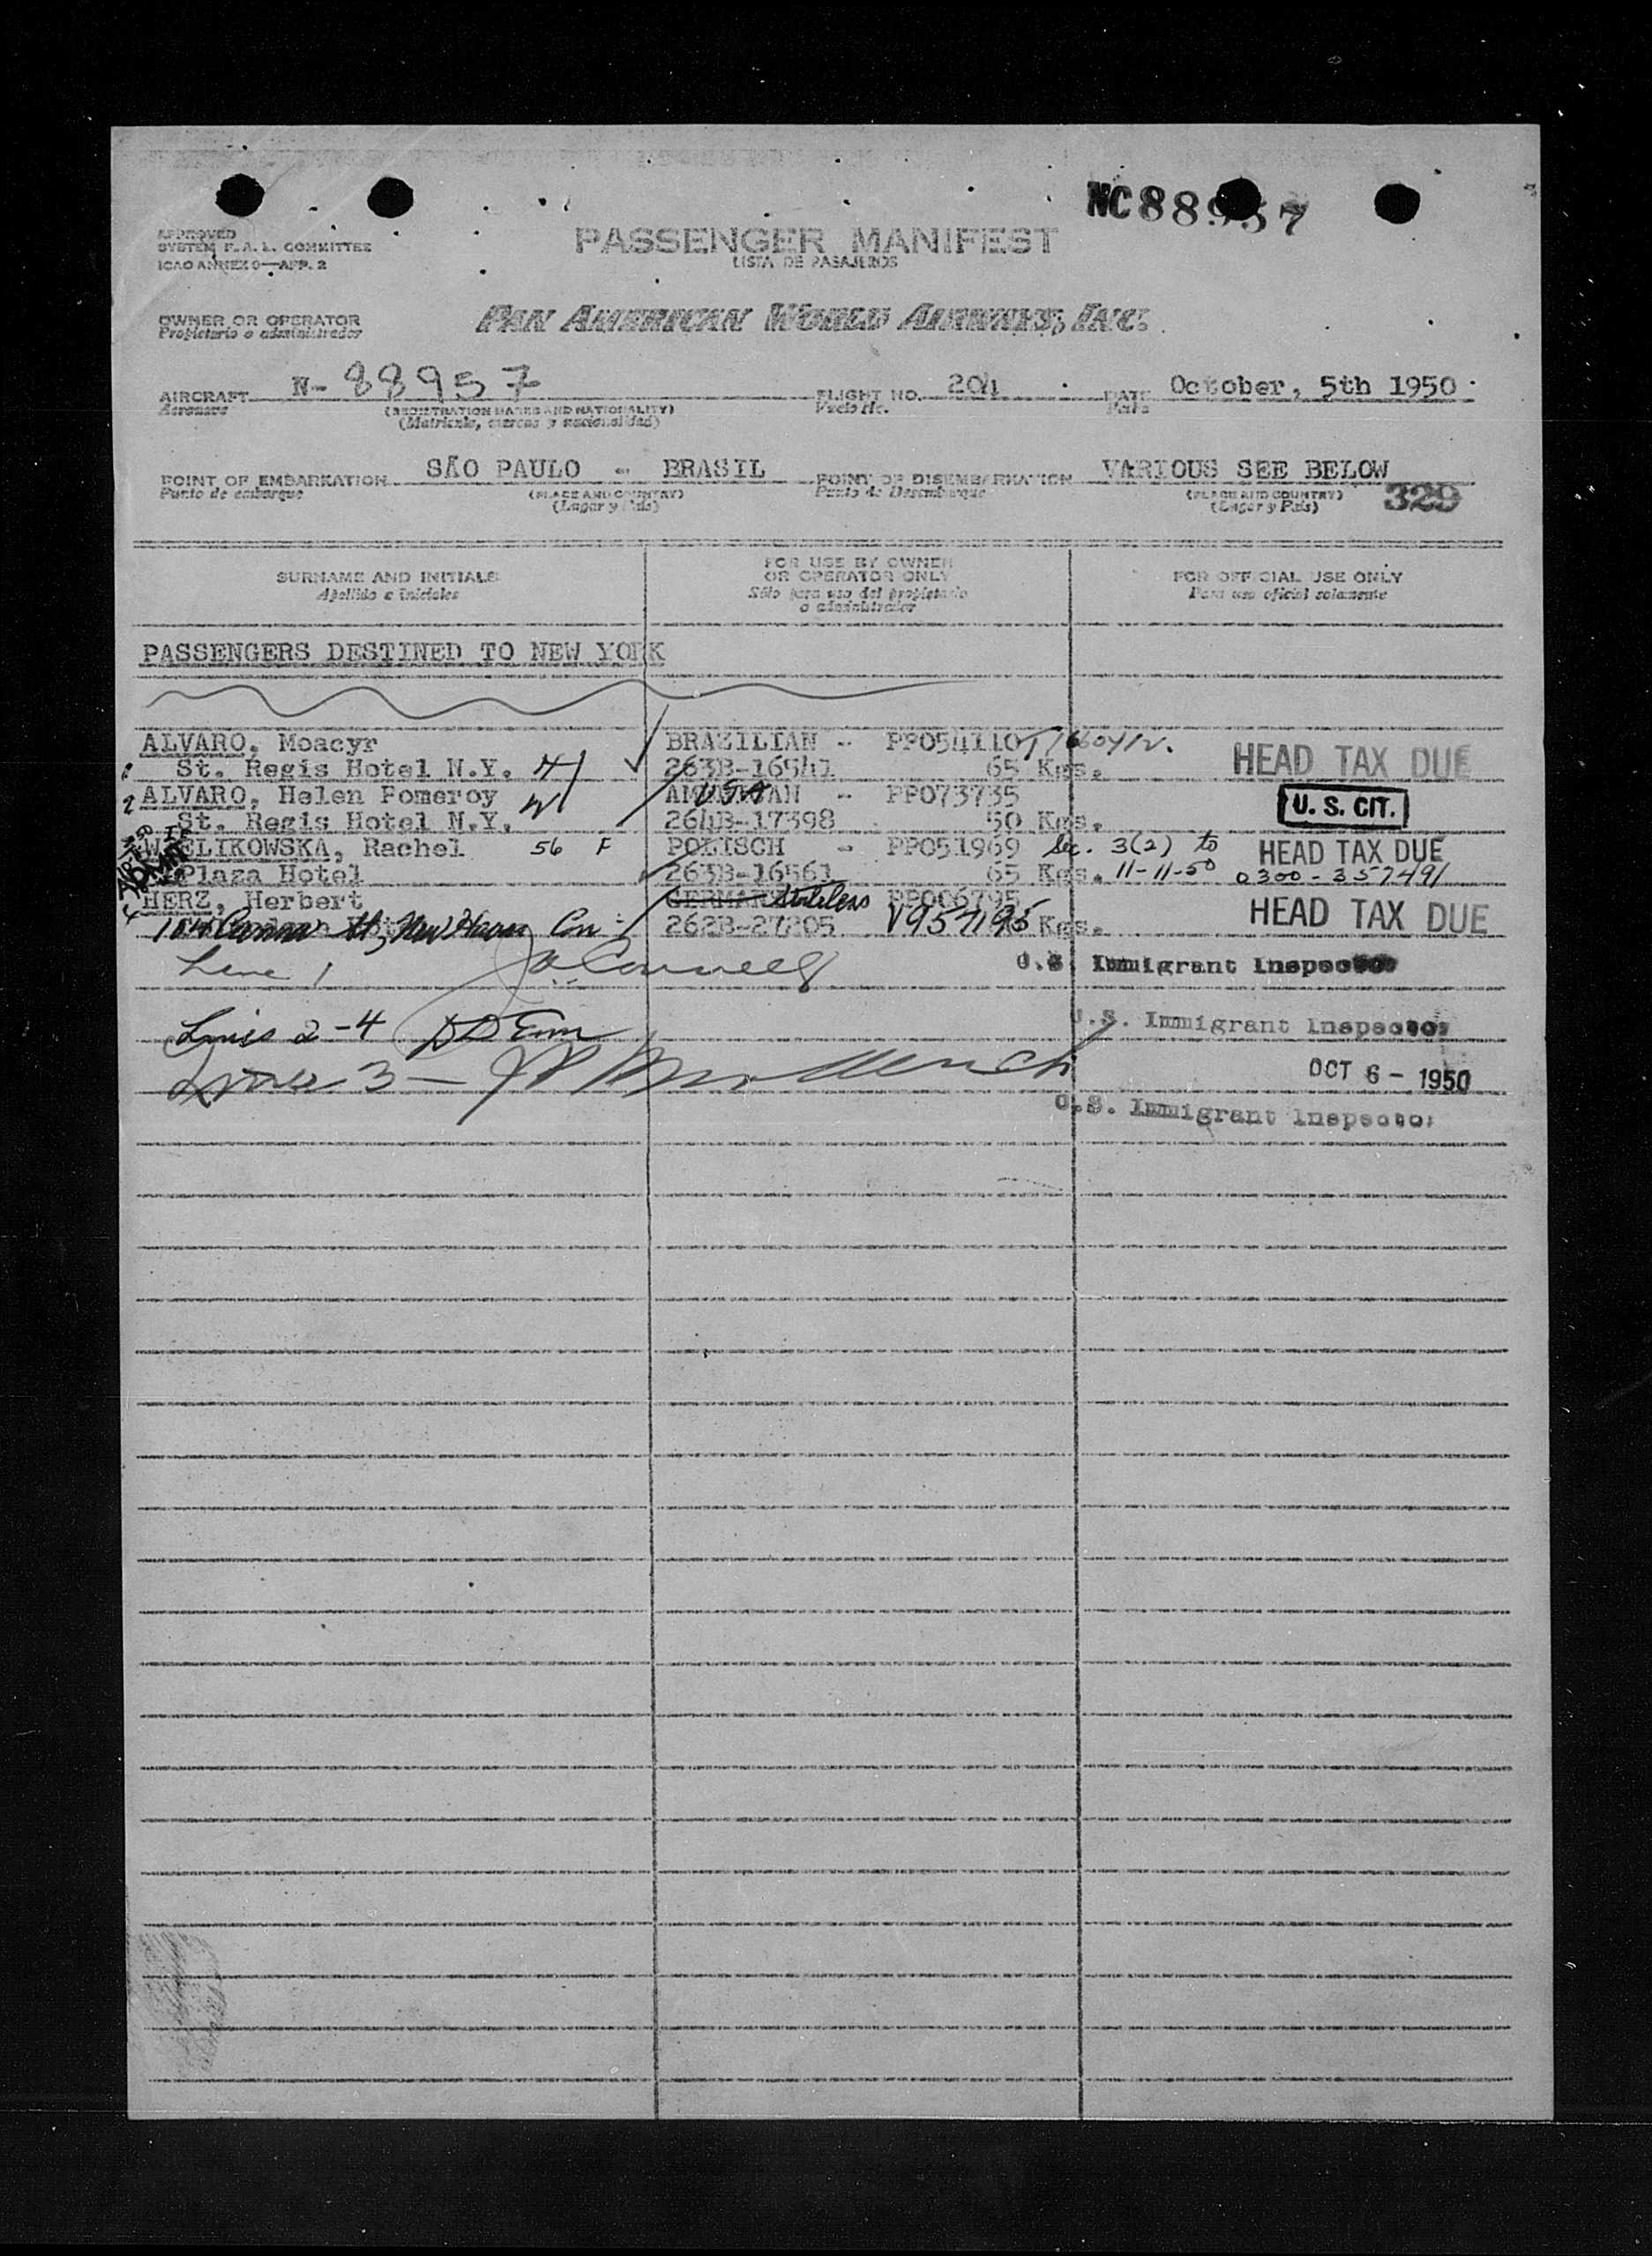 NC88957
APPROVED
SYSTEM F. A. L. COMMITTEE
ICAO ANNEX 9—APP. 2
PASSENGER MANIFEST
LISTA DE PASAJEROS
OWNER OR OPERATOR
Propietario o administrador
PAN AMERICAN WORLD AIRWAYS, INC.
AIRCRAFT N- 88957 FLIGHT NO. 204 DATE October, 5th 1950
Aeronave (REGISTRATION MARKS AND NATIONALITY) Vuelo No. Fecha
(Matrícula, marcas y nacionalidad)
POINT OF EMBARKATION SÃO PAULO - BRASIL POINT OF DISEMBARKATION VARIOUS SEE BELOW
Punto de embarque (PLACE AND COUNTRY) Punto de Desembarque (PLACE AND COUNTRY) 329
(Lugar y País) (Lugar y País)
SURNAME AND INITIALS FOR USE BY OWNER OR OPERATOR ONLY FOR OFFICIAL USE ONLY
Apellido e iniciales Sólo para uso del propietario o administrador Para uso oficial solamente
PASSENGERS DESTINED TO NEW YORK
ALVARO, Moacyr BRAZILIAN - PP054110
1 St. Regis Hotel N.Y. 263B-16541 65 Kgs. HEAD TAX DUE
2 ALVARO, Helen Pomeroy AMERICAN USA - PP073735 U. S. CIT.
St. Regis Hotel N.Y. 264B-17398 50 Kgs.
WIELIKOWSKA, Rachel 56 F POLISCH - PP051969 Sec. 3(2) to HEAD TAX DUE
Plaza Hotel 263B-16561 65 Kgs. 11-11-50 0300-357491
4 HERZ, Herbert GERMAN Stateless PP006795 HEAD TAX DUE
St, New Haven Con 262B-27205 V957195 Kgs.
Line 1 U.S. Immigrant Inspector
Lines 2-4 U.S. Immigrant Inspector
OCT 6 - 1950
3 — U.S. Immigrant Inspector